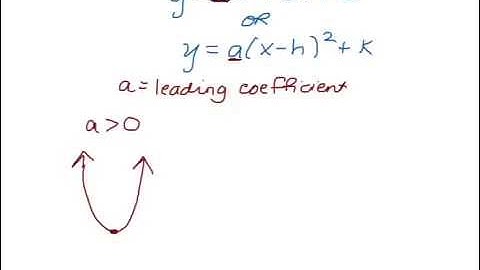 y =
OR
y = a(x-h)² + k
a = leading coefficient
a > 0